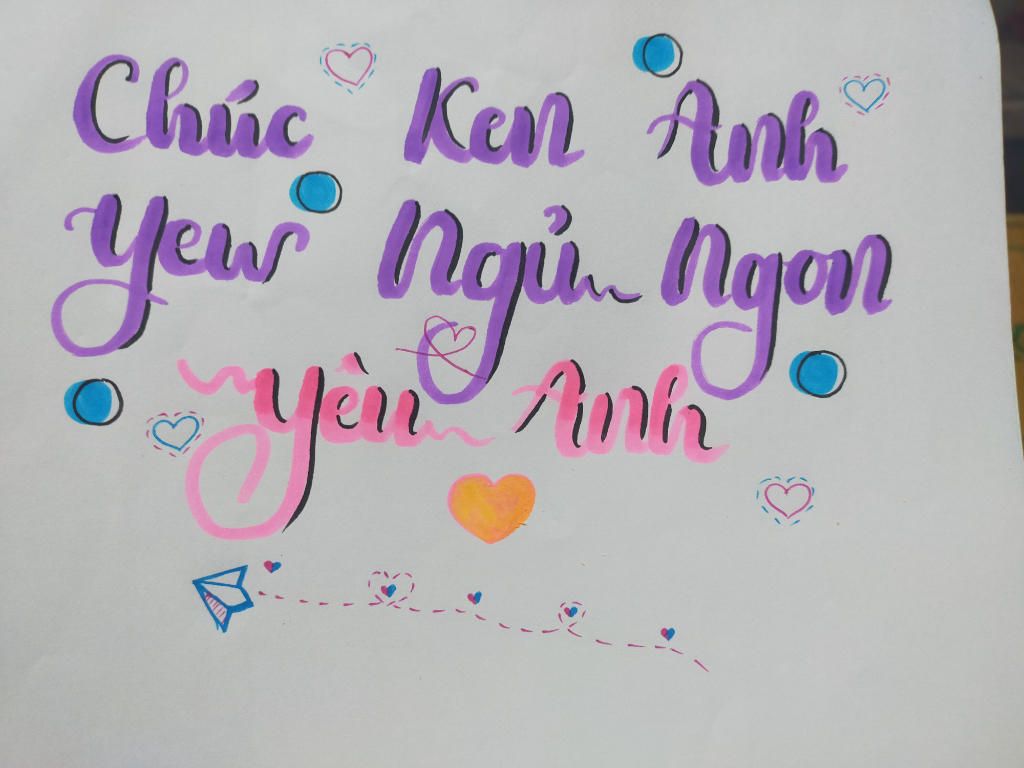 Chúc Ken Anh
Yew Ngủ Ngon
Yêu Anh